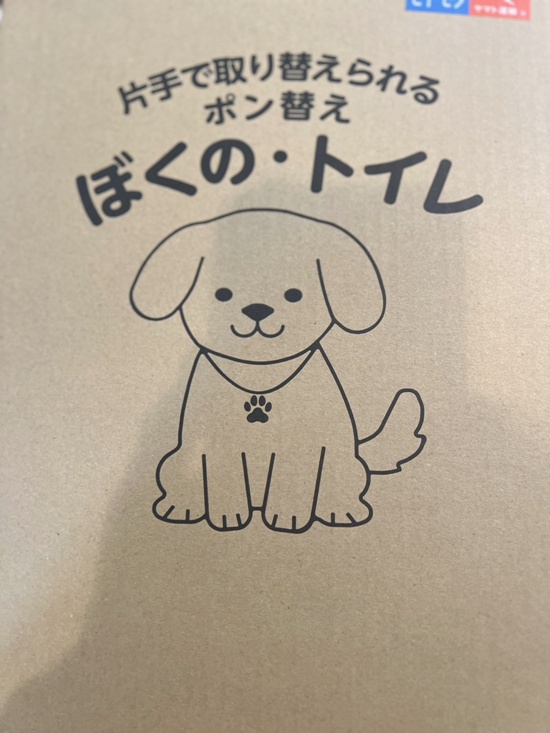 片手で取り替えられる
ポン替え
ぼくの・トイレ